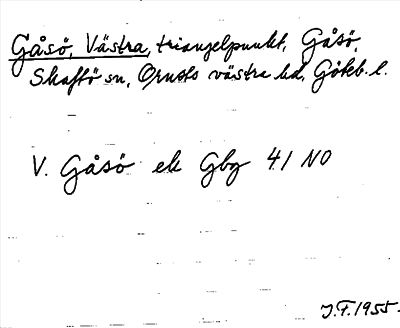 Gåsö, Västra, triangelpunkt, Gåsö,
Skaftö sn, Orusts västra hd, Göteb. l.
V. Gåsö ek Gbg 41 NO
J.F. 1955.